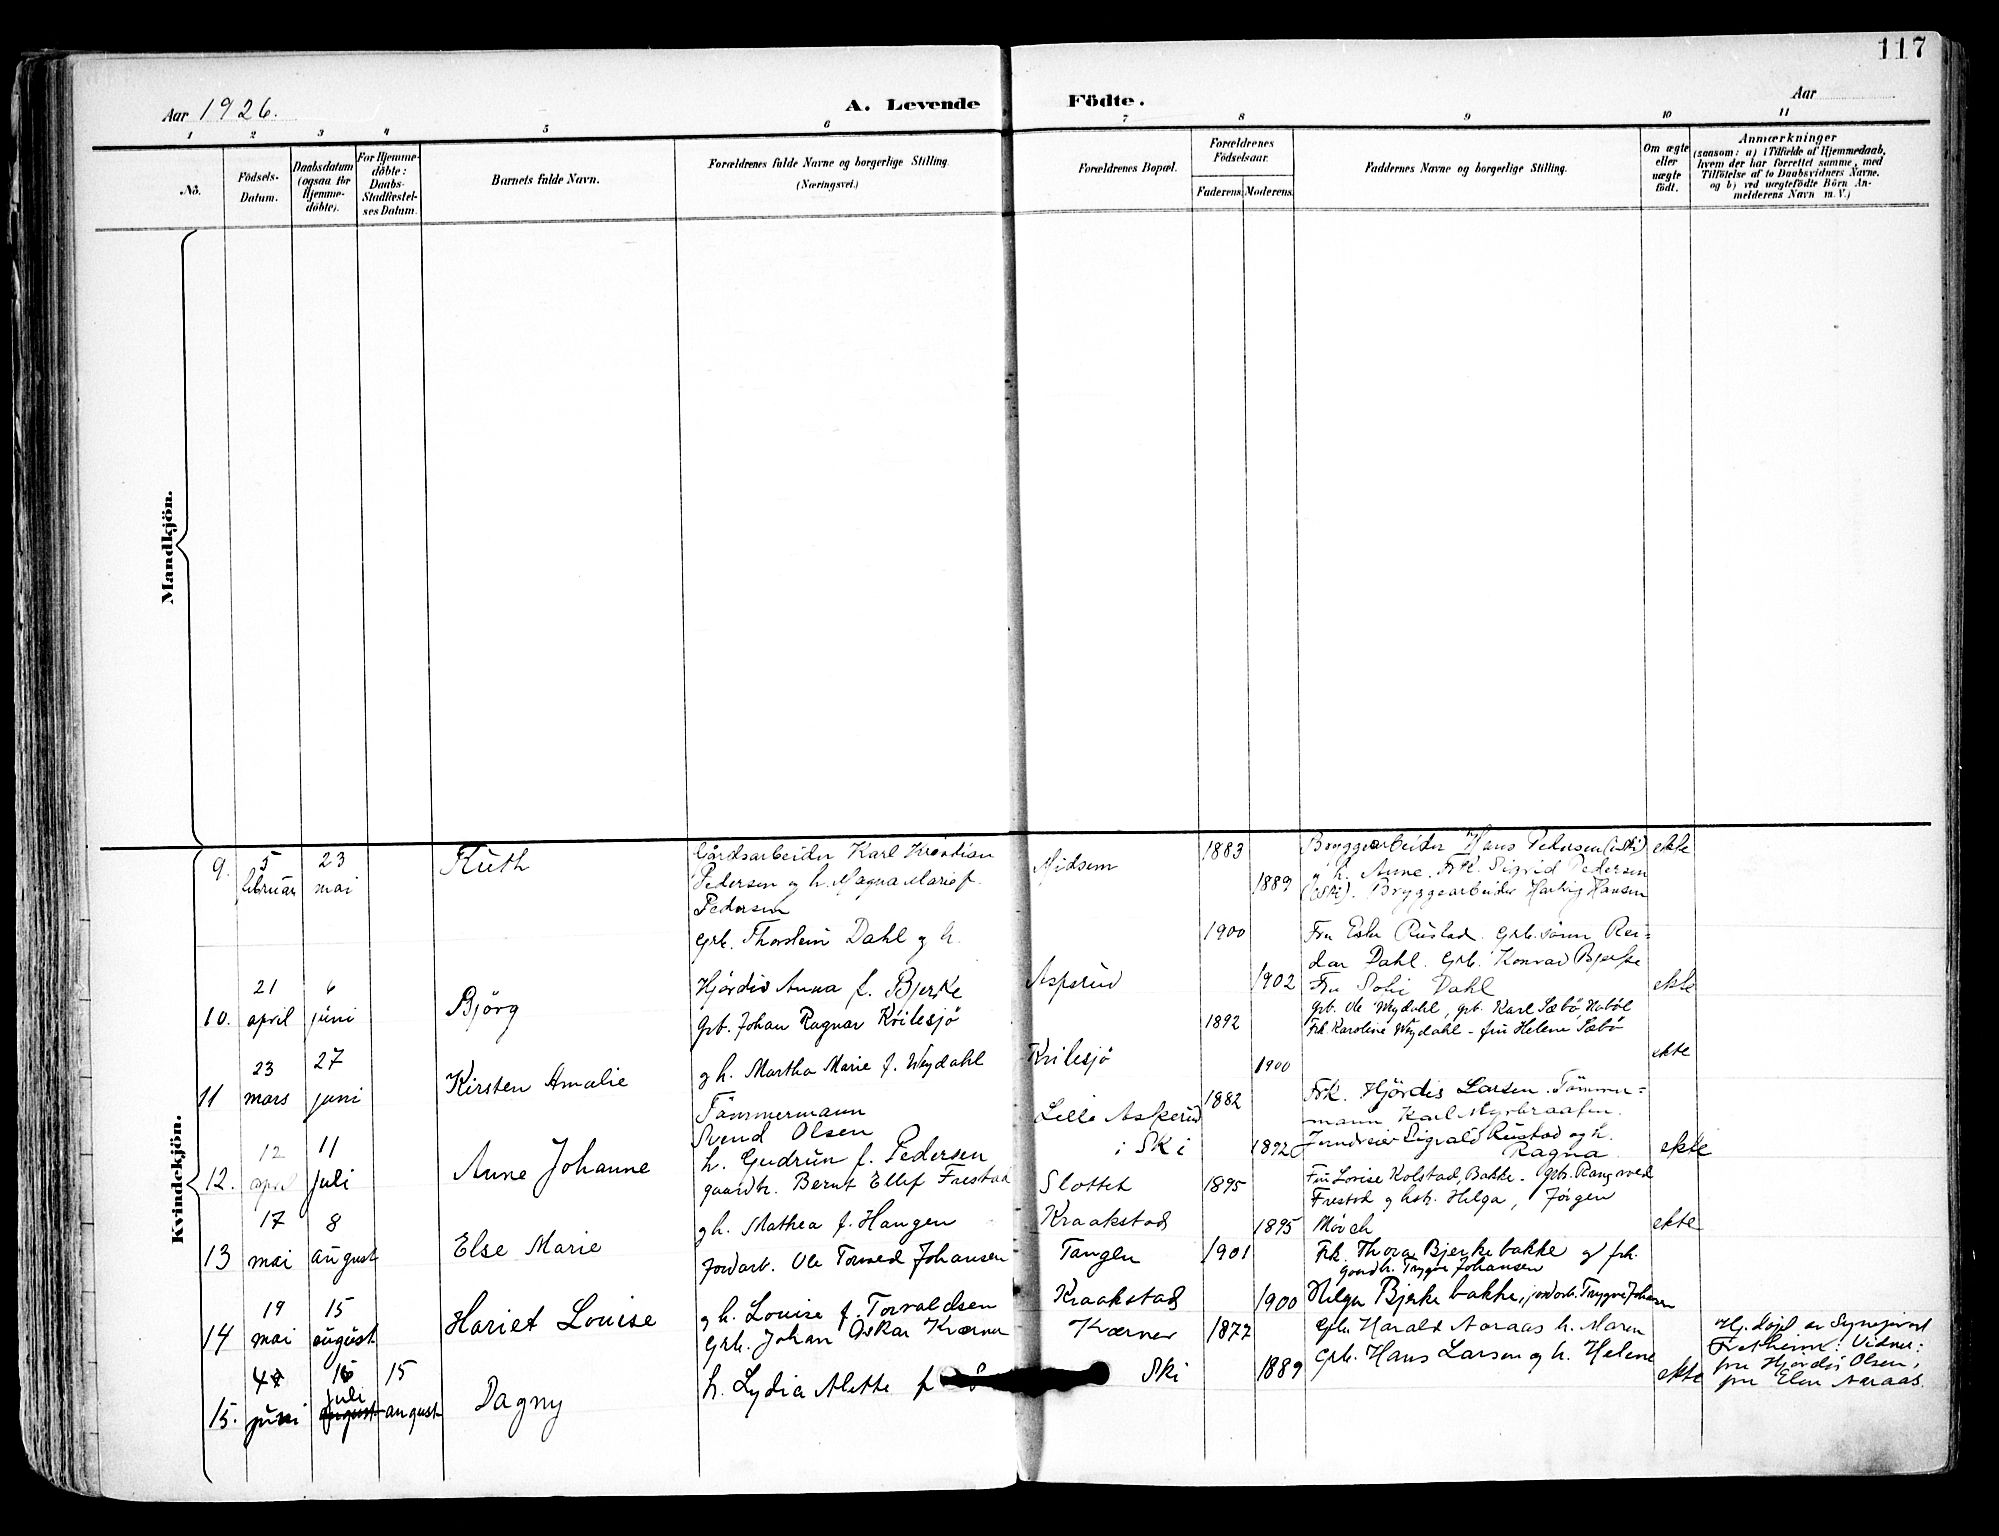 117
Aar 1926.
A. Levende Födte.
Aar
1 2 3 4 5 6 7 8 9 10 11
No.
Födsels-
Datum.
Daabsdatum
(ogsaa for
Hjemme-
döbte).
For Hjemme-
döbte:
Daabs-
Stadfæstel-
ses Datum.
Barnets fulde Navn.
Forældrenes fulde Navne og borgerlige Stilling
(Næringsvei.)
Forældrenes Bopæl.
Forældrenes
Födselsaar.
Faderens. Moderens.
Faddernes Navne og borgerlige Stilling.
Om ægte
eller
uægte
födt.
Anmærkninger
(saasom: a) i Tilfælde af Hjemmedaab,
hvem der har forrettet samme, med
Tilföielse af to Daabsvidners Navne,
og b) ved uægtefödte Börn An-
melderens Navn m. V.)
Mandkjön.
Kvindekjön.
9. 5 februar 23 mai
Ruth
Gårdsarbeider Karl
Pedersen og h. Magna Marie f.
Pedersen
Midsem
1883
1889
Bryggearbeider Hans Pedersen (i Ski)
o h. Anne. Frk. Sigrid Pedersen
(Ski). Bryggearbeider Hartvig Hansen
ekte
10. 21 april 6 juni
Björg
Grb. Thorstein Dahl og h.
Hjørdis Anna f. Bjerke
Asperud
1900
1902
Fru Ester Rustad. Grb. sönn Rei-
dar Dahl. Grb. Konrad Bjerke
Fru Sofi Dahl
ekte
11 23 mars 27 juni
Kirsten Amalie
Grb. Johan Ragnar Kvilesjö
og h. Martha Marie f. Wøydahl
Kvilesjö
1892
1900
Grb. Ole Wøydahl, grb. Karl Sæbö, Hobøl
Frk Karoline Wøydahl - fru Helene Sæbö
ekte
12. 12 april 11 juli
Anne Johanne
Tömmermann
Svend Olsen
h. Gudrun f. Pedersen
Lille Asperud
i Ski
1882
1892
Frk. Hjördis Larsen. Tömmer-
mann Karl Myrbraaten.
Jerndreier Sigvald Rustad og h.
Ragna
ekte
13 17 mai 8 august
Else Marie
gaardbr. Bernt Ellef Frestad
og h. Mathea f. Haugen
Slottet
Kraakstad
1895
1895
Fru Lovise Kolstad, Bakke. Grb. Rangvved
Frestad og hstr. Helga, Jörgen
Mörch
ekte
14 19 mai 15 august
Hariet Louise
jordarb. Ole Tormod Johansen
og h. Louise f. Torvaldsen
Tangen
Kraakstad
1901
1900
Frk. Thora Bjerkebakke og frk.
gaardbr. Trygve Johansen
Helga Bjerkebakke, jordarb. Trygve Johansen
15. 4 juni 15 juli august 15 august
Dagny
Grb. Johan Oskar Kværner
h. Lydia Alette f.
Kværner
Ski
1877
1889
Grb. Harald Aaraas h. Maren
Grb. Hans Larsen og h. Helene
ekte
Hj. døpt av
Fretheim: Vidner:
fru Hjördis Olsen,
fru Elen Aaraas.